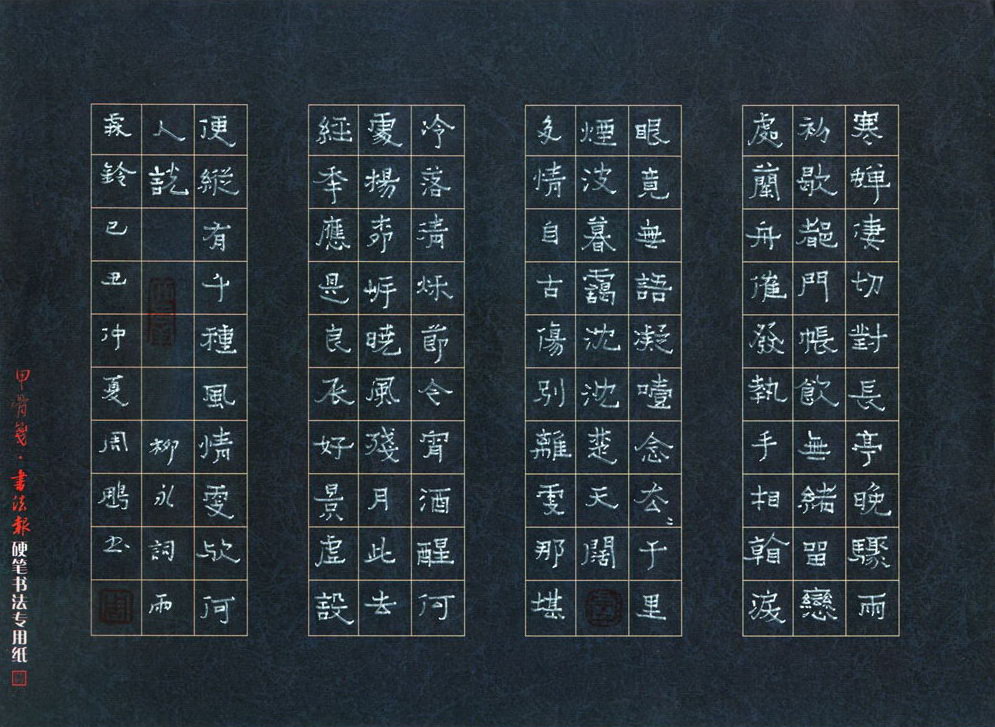 寒蟬凄切對長亭晚驟雨
初歇都門帳飲無緒留戀
處蘭舟催發執手相看淚
眼竟無語凝噎念去〻千里
煙波暮靄沈沈楚天闊
多情自古傷別離更那堪
冷落清秋節今宵酒醒何
處楊柳岸曉風殘月此去
經年應是良辰好景虛設
便縱有千種風情更與何
人說 柳永詞雨
霖鈴己丑仲夏周鵬书
甲骨箋·書法報硬笔书法专用纸